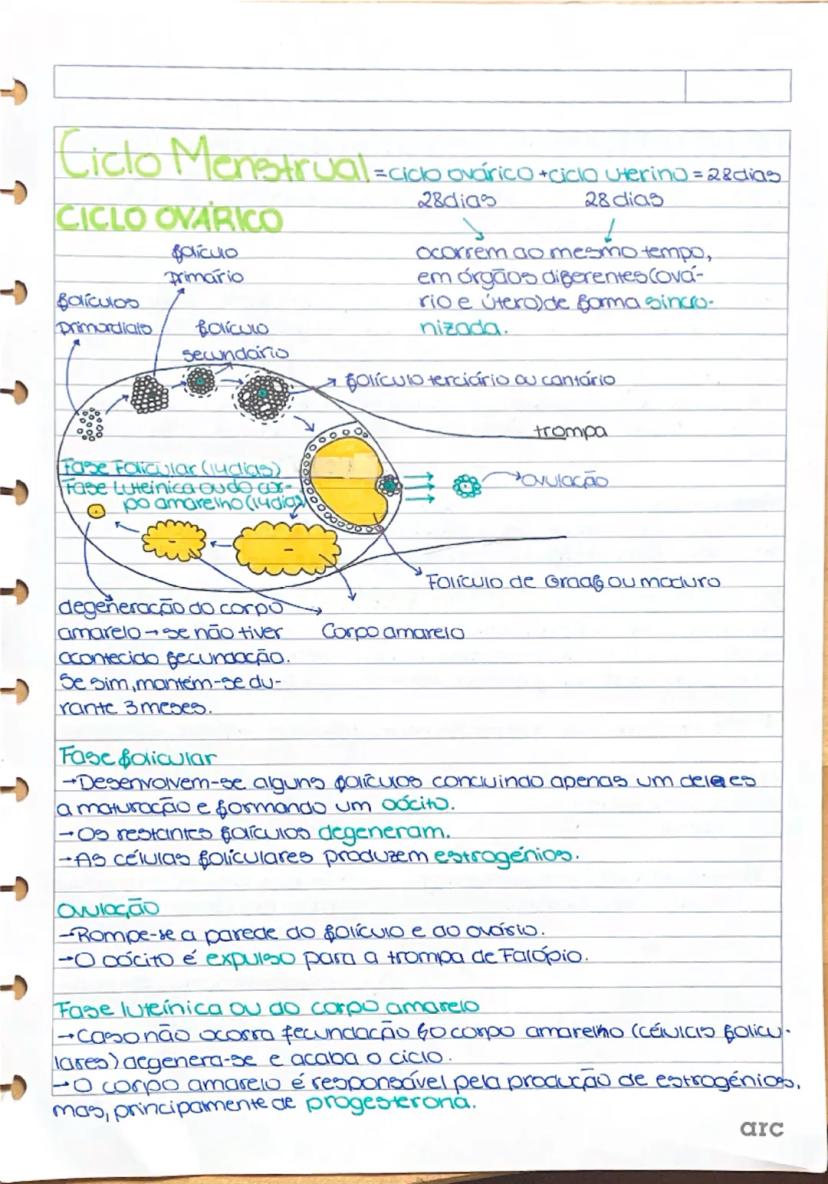 Ciclo Menstrual = ciclo ovárico + ciclo uterino = 28 dias
28 dias 28 dias
CICLO OVÁRICO
ocorrem ao mesmo tempo,
em órgãos diferentes (ová-
rio e útero) de forma sincro-
nizada.
folículo
primário
folículos
primordiais
folículo
secundário
folículo terciário ou cantário
trompa
Fase Folicular (14 dias)
Fase Luteínica ou do cor-
po amarelho (14 dias)
ovulação
Folículo de Graaf ou maduro
degeneração do corpo
amarelo → se não tiver
acontecido fecundação.
Se sim, mantém-se du-
rante 3 meses.
Corpo amarelo
Fase folicular
→ Desenvolvem-se alguns folículos concluindo apenas um deles
a maturação e formando um oócito.
→ Os restantes folículos degeneram.
→ As células foliculares produzem estrogénios.
Ovulação
→ Rompe-se a parede do folículo e do ovário.
→ O oócito é expulso para a trompa de Falópio.
Fase luteínica ou do corpo amarelo
→ Caso não ocorra fecundação o corpo amarelho (células folicu-
lares) degenera-se e acaba o ciclo.
→ O corpo amarelo é responsável pela produção de estrogénios,
mas, principamente de progesterona.
arc